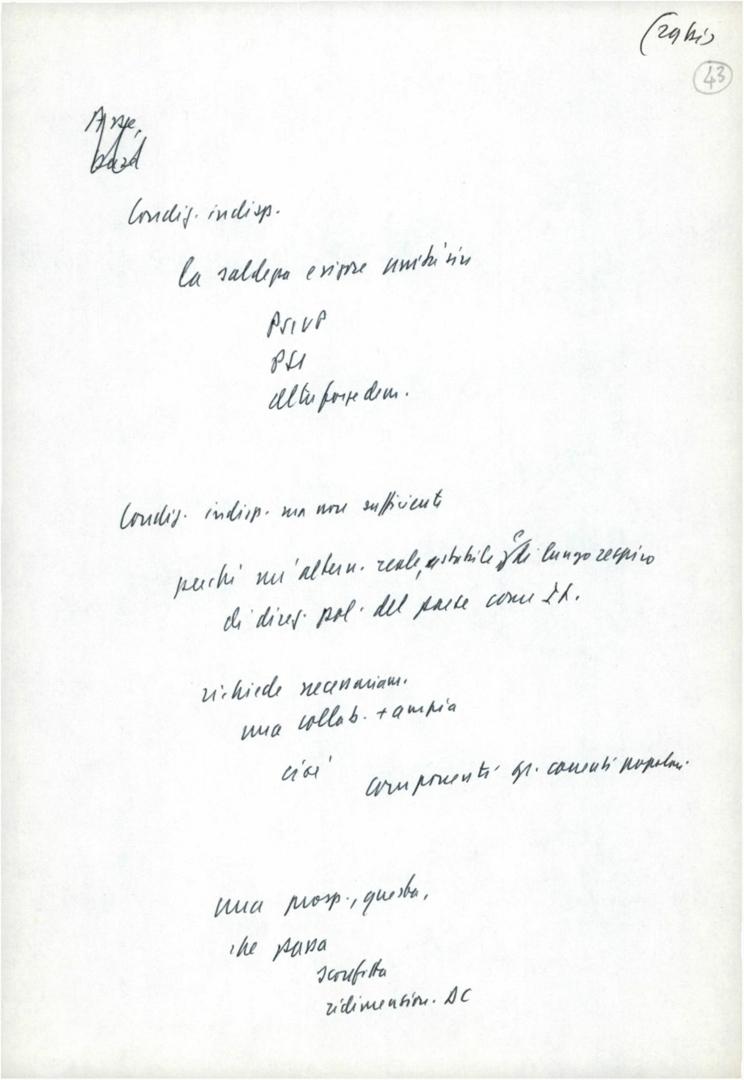 (29 bis)
43
Condiz. indisp.
la saldezza e vigore unità sin
PSIUP
PSI
altre forze dem.
Condiz. indisp. ma non sufficienti
perché un'altern. reale, stabile e di lungo respiro
di direz. pol. del paese come It.
richiede necessariam.
una collab. + ampia
cioè
componenti gr. correnti popolari
una prosp., questa,
che passa
sconfitta
ridimension. DC